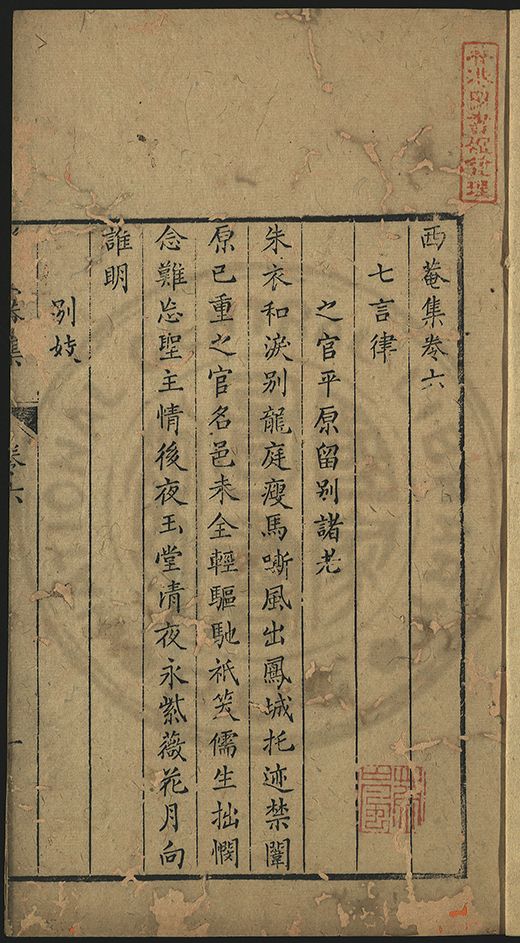 西菴集卷六
七言律
之官平原留别諸老
朱衣和淚别龍庭瘦馬嘶風出鳳城托迹禁闈
原已重之官名邑未全輕驅馳祇笑儒生拙憫
念難忘聖主情後夜玉堂清夜永紫薇花月向
誰明
别妓
集
卷六
一